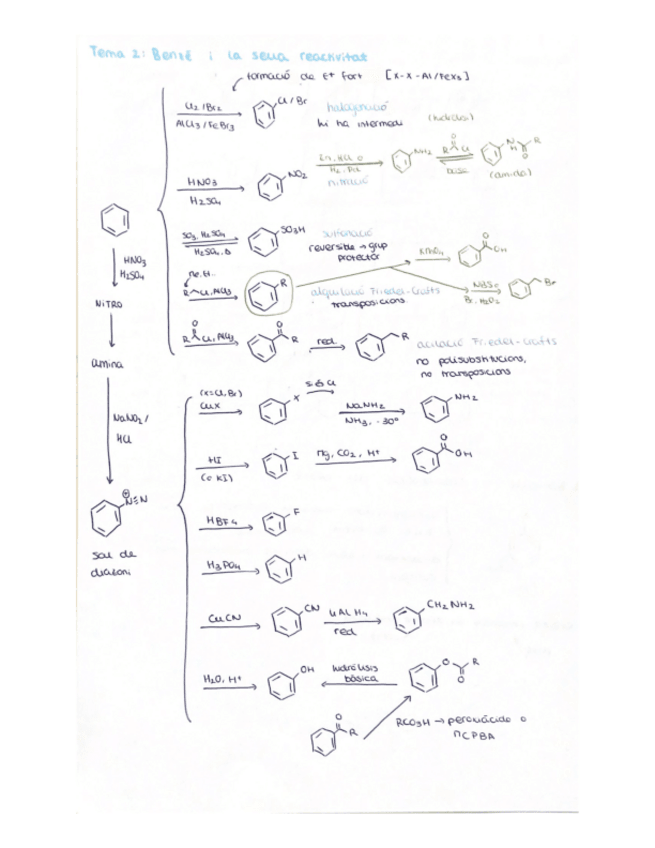 Tema 2: Benzé i la seua reactivitat
formació de E+ fort [X-X-Al/FeX3]
Cl2/Br2
AlCl3/FeBr3
Cl/Br
halogenació
hi ha intermedi
HNO3
H2SO4
NO2
nitració
Zn, HCl o
NH2
R
O
Cl
base
O
N
H
R
(amida)
SO3, H2SO4
H2SO4, Δ
SO3H
sulfonació
reversible → grup
protector
KMnO4
O
OH
R
Cl, AlCl3
R
alquilació Friedel-Crafts
transposicions
NBS o
Br
O
R
Cl, AlCl3
O
R
red.
R
acilació Friedel-Crafts
no polisubstitucions,
no transposicions
HNO3
H2SO4
NITRO
amina
NaNO2/
HCl
⊕
N≡N
sal de
diazoni
(X=Cl, Br)
CuX
X
NaNH2
NH3, -30°
NH2
HI
(o KI)
I
Mg, CO2, H+
O
OH
HBF4
F
H3PO4
H
CuCN
CN
LiAlH4
red
CH2NH2
H2O, H+
OH
hidròlisis
bàsica
O
R
O
O
R
RCO3H → peroxiácido o
mCPBA